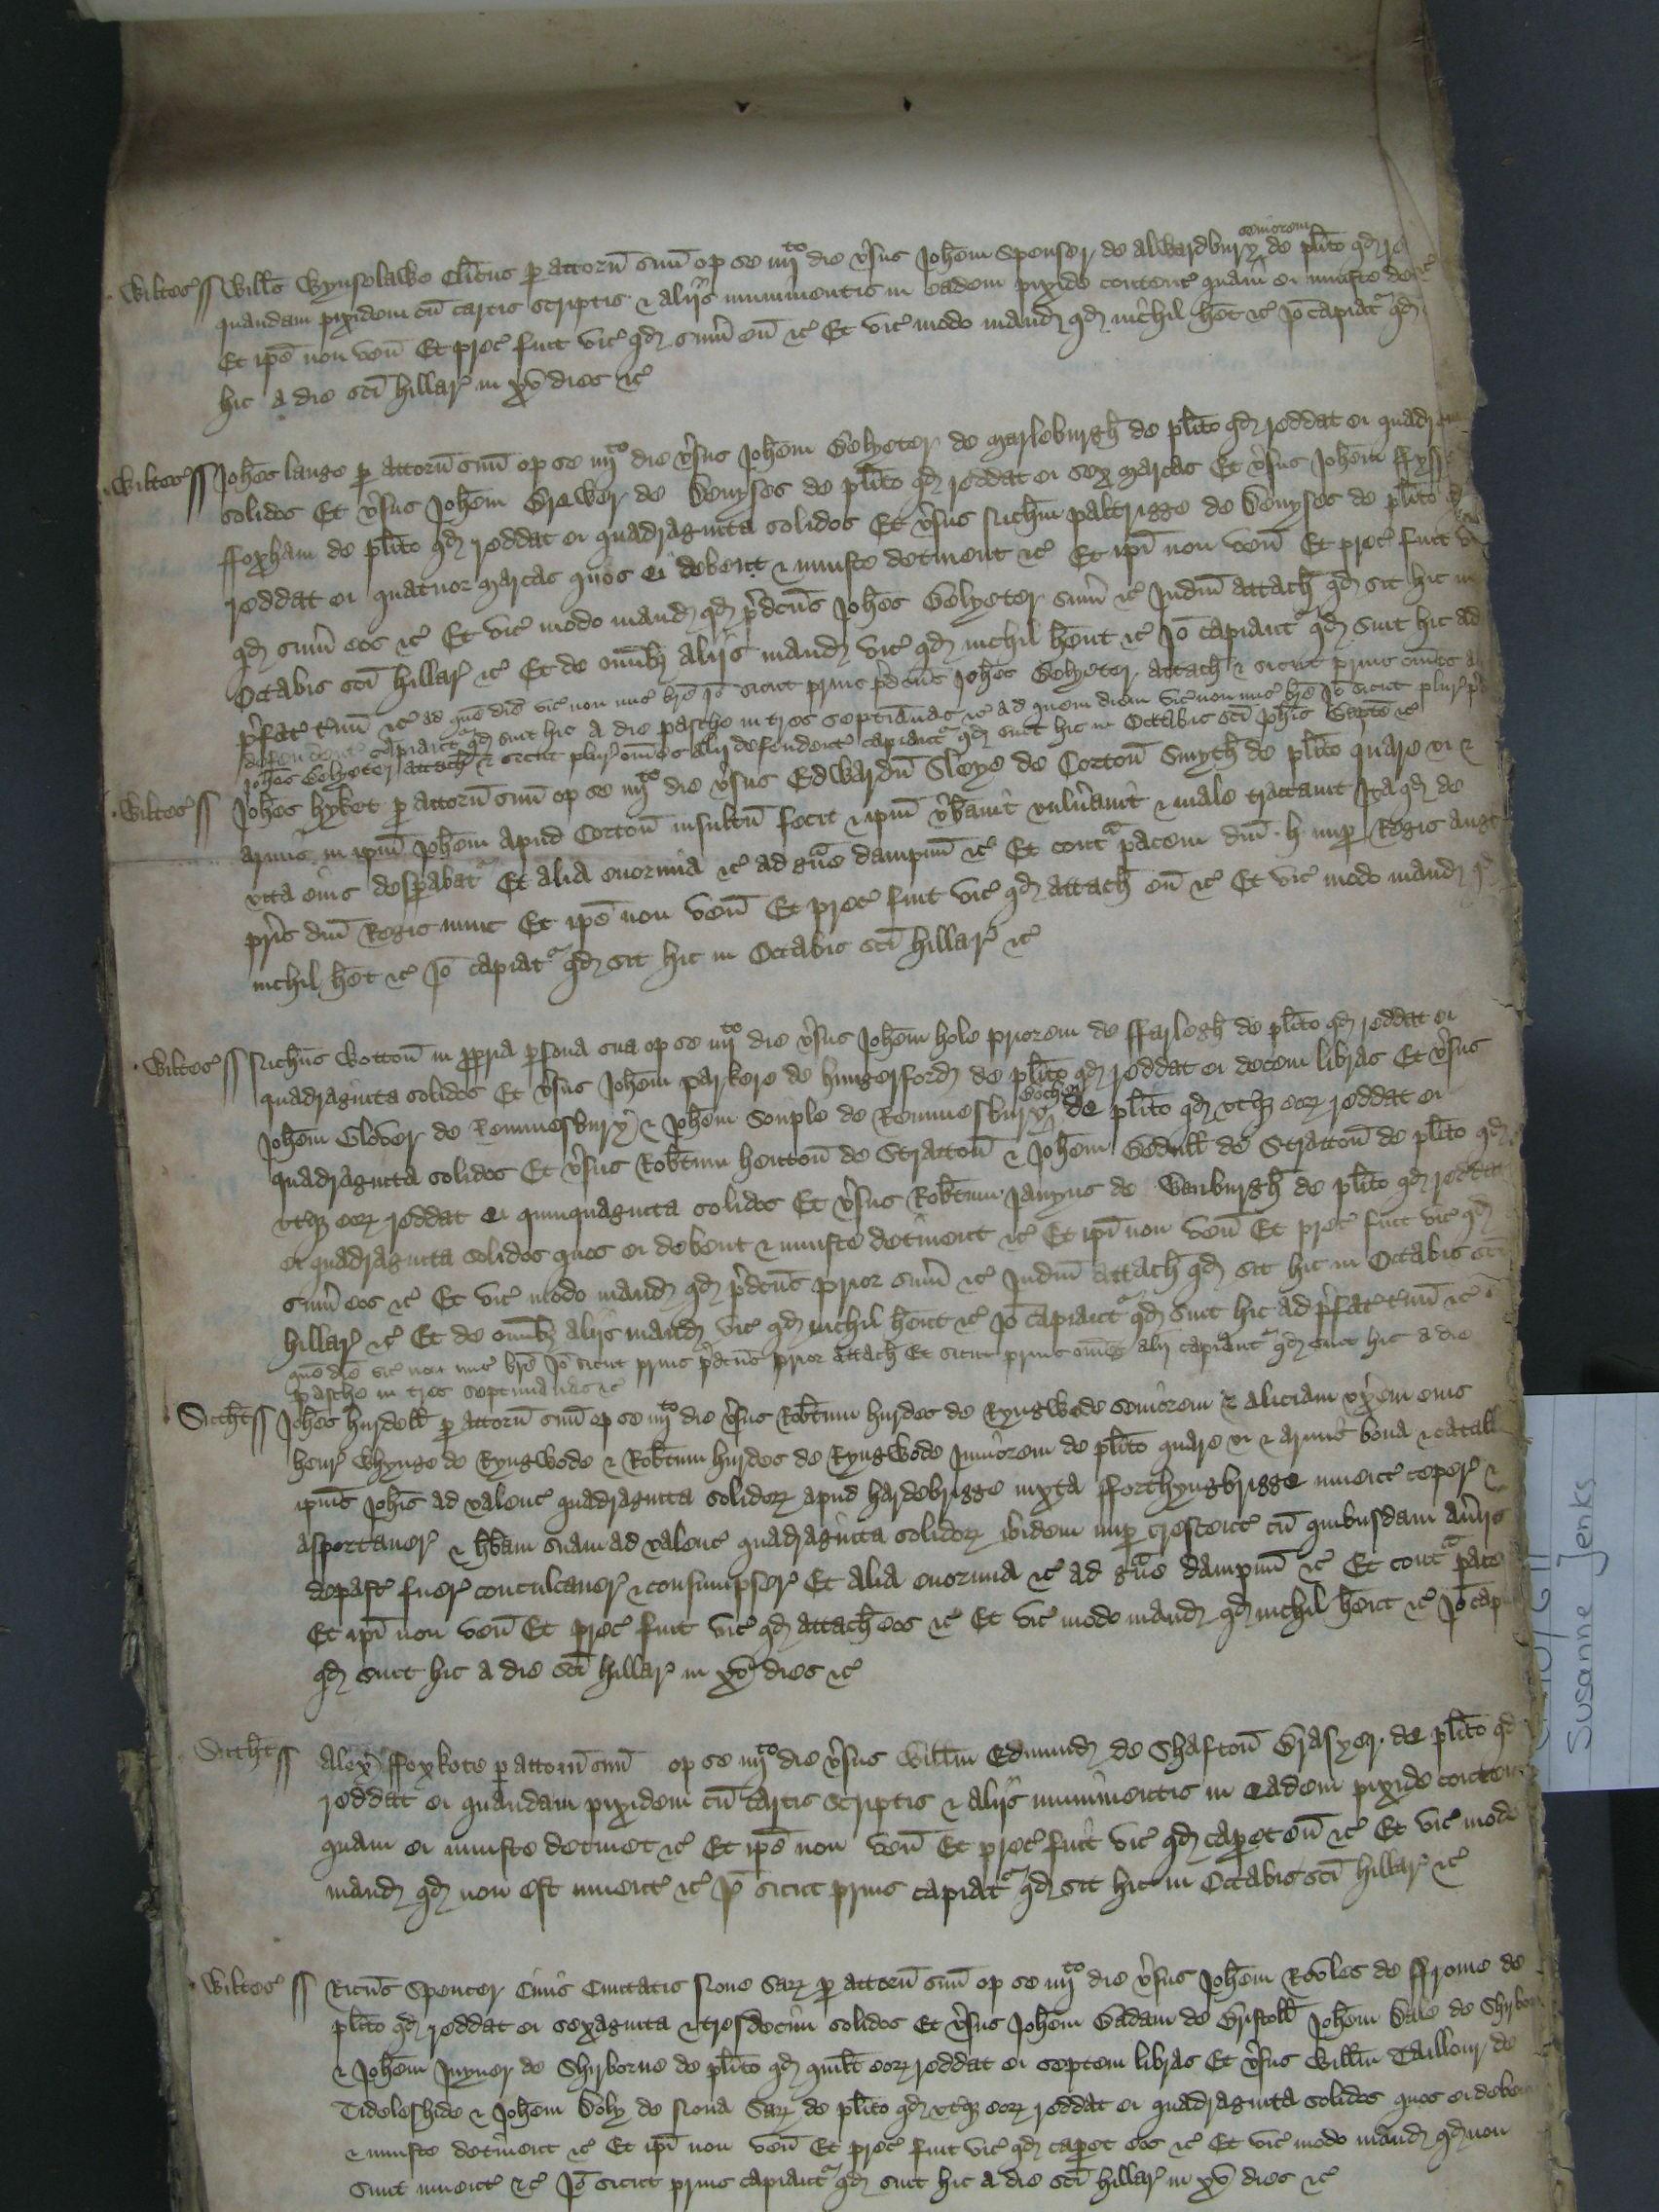 Wiltes' ss Willս Wynselawe Cl'icus p attorn suu op se iiijto die v'sus Joh'em Spenser de Alwardbury seniorem de pl'ito qd re
quandam pixidem cu cartis scriptis & aliis munimentis in eadem pixide content' quam ei iniuste det' &c'
Et ip'e non ven Et prec' fuit vic' qd sum' eu &c' Et vic' modo mand qd nichil h'et &c' Jo capiat' qd
hic a die s'ci Hillar' in xv dies &c'
Wiltes' ss Joh'es Lange p attorn suu op se iiijto die v'sus Joh'em Belyeter de Marleburgh de pl'ito qd reddat ei quadra
solidos Et v'sus Joh'em Brewer de Devyses de pl'ito qd reddat ei sex marcas Et v'sus Joh'em
ffoxham de pl'ito qd reddat ei quadraginta solidos Et v'sus Nich'm Paltrigge de Devyses de pl'ito
reddat ei quatuor marcas quos ei debent & iniuste detinent &c' Et ip'i non ven Et prec' fuit vic'
qd sum' eos &c' Et vic' modo mand qd p'dcus Joh'es Belyeter sum' &c' Judm attach qd sit hic in
Octabis s'ci Hillar' &c' Et de omib; aliis mand vic' qd nichil h'ent &c' Jo capiant' qd sint hic ad
p'fat' t'mu &c' ad que die vic' non mis' bre Jo sicut prius p'dcus Joh'es Belyeter attach & sicut prius omes a
defendent' capiant' qd sint hic a die Pasche in tres septi'anas &c' ad quem diem vic' non mis' bre Jo sicut plur' p'd
Joh'es Belyeter attach & sicut plur' om'es alij defendent' capiant' qd sint hic in Octabis s'ci Joh'is Bapte &c'
Wiltes' ss Joh'es Hyket p attorn suu op se iiijto die v'sus Edwardu Sleye de Corton Smyth de pl'ito quare vi &
armis in ipm Joh'em apud Corton insultu fecit & ipm v'bavit vuln'avit & male tractavit Ita qd de
vita eius desp'abat' Et alia enormia &c' ad g've dampnu &c' Et cont' pacem dni H nup Regis Angl
pris dni Regis nunc Et ip'e non ven Et prec' fuit vic' qd attach eu &c' Et vic' modo mand qd
nichil h'et &c' Jo capiat' qd sit hic in Octabis s'ci Hillar' &c'
Wiltes' ss Nich'us Wotton in ppria p'sona sua op se iiijto die v'sus Joh'em Hole priorem de ffarlegh de pl'ito qd reddat ei
quadraginta solidos Et v'sus Joh'em Parkere de Hungerford de pl'ito qd reddat ei decem libras Et v'sus
Joh'em Glover de Remmesbury & Joh'em Souple de Remmesbury Bocher de pl'ito qd vt'q; eor' reddat ei
quadraginta solidos Et v'sus Rob'tum Henton de Stratton & Joh'em Bedull de Stratton de pl'ito qd
vt'q; eor' reddat ei quinquaginta solidos Et v'sus Rob'tum Janyns de Wanburgh de pl'ito qd reddat
ei quadraginta solidos quos ei debent & iniuste detinent &c' Et ip'i non ven Et prec' fuit vic' qd
sum' eos &c' Et vic' modo mand qd p'dcus prior sum' &c' Judm attach qd sit hic in Octabis s'ci
Hillar' &c' Et de omib; aliis mand vic' qd nichil h'ent &c' Jo capiant' qd sint hic ad p'fat' t'mu &c'
que die vic' non mis' bre Jo sicut prius p'dcus prior attach Et sicut prius omes alij capiant' qd sint hic a die
Pasche in tres septimanas &c'
Sutht ss Joh'es Hurdell p attorn suu op se iiijto die v'sus Rob'tum Hurdes de Ryngwode seniorem & Aliciam vx'em eius
Henr' Whynge de Ryngwode & Rob'tum Hurdes de Ryngwode Juniorem de pl'ito quare vi & armis bona & catall
ipius Joh'is ad valenc' quadraginta solidor' apud Hardebrigge iuxta fforthyngbrigge invent' ceper' &
asportaver' & h'bam suam ad valenc' quadraginta solidor' ibidem nup crescent' cu quibusdam av'iis
depast' fuer' conculcaver' & consumpser' Et alia enormia &c' ad g've dampnu &c' Et cont' pace
Et ip'i non ven Et prec' fuit vic' qd attach eos &c' Et vic' modo mand qd nichil h'ent &c' Jo cap
qd sint hic a die s'ci Hillar' in xv dies &c'
Sutht ss Alex' ffoxkote p attorn suu op se iiijto die v'sus Will'm Edmund de Shafton Grasyer de pl'ito qd
reddat ei quandam pixidem cu cartis scriptis & aliis munimentis in eadem pixide conten
quam ei iniuste detinet &c' Et ip'e non ven Et prec' fuit vic' qd caperet eu &c' Et vic' modo
mand qd non est invent' &c' Jo sicut prius capiat' qd sit hic in Octabis s'ci Hillar' &c'
Wiltes' ss Ric'us Spencer Civis Civitatis Nove Sar' p attorn suu op se iiijto die v'sus Joh'em Robles de ffrome de
pl'ito qd reddat ei sexaginta & tresdecim solidos Et v'sus Joh'em Badam de Bristoll Joh'em Dale de Shirborn
& Joh'em Joyner de Shirborne de pl'ito qd quil't eor' reddat ei septem libras Et v'sus Will'm Taillour de
Tideleshide & Joh'em Doly de Nova Sar' de pl'ito qd vt'q; eor' reddat ei quadraginta solidos quos ei deben
& iniuste detinent &c' Et ip'i non ven Et prec' fuit vic' qd caperet eos &c' Et vic' modo mand qd non
sunt invent' &c' Jo sicut prius capiant' qd sint hic a die s'ci Hillar' in xv dies &c'
Susanne Jenks